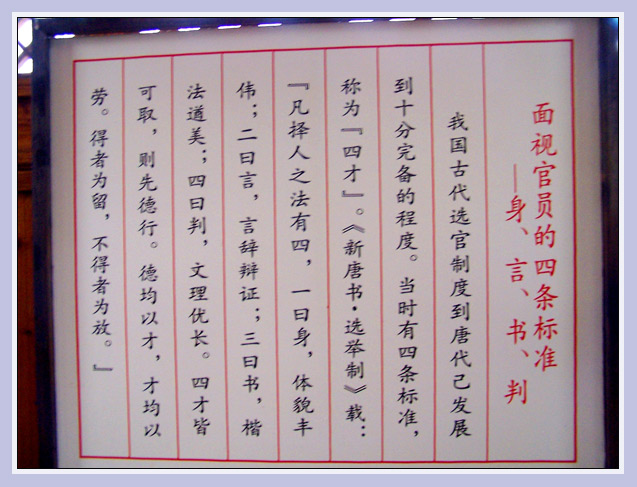 面视官员的四条标准
—身、言、书、判
我国古代选官制度到唐代己发展
到十分完备的程度。当时有四条标准，
称为『四才』。《新唐书·选举制》载：
『凡择人之法有四，一曰身，体貌丰
伟；二曰言，言辞辩证；三曰书，楷
法道美；四曰判，文理优长。四才皆
可取，则先德行。德均以才，才均以
劳。得者为留，不得者为放。』